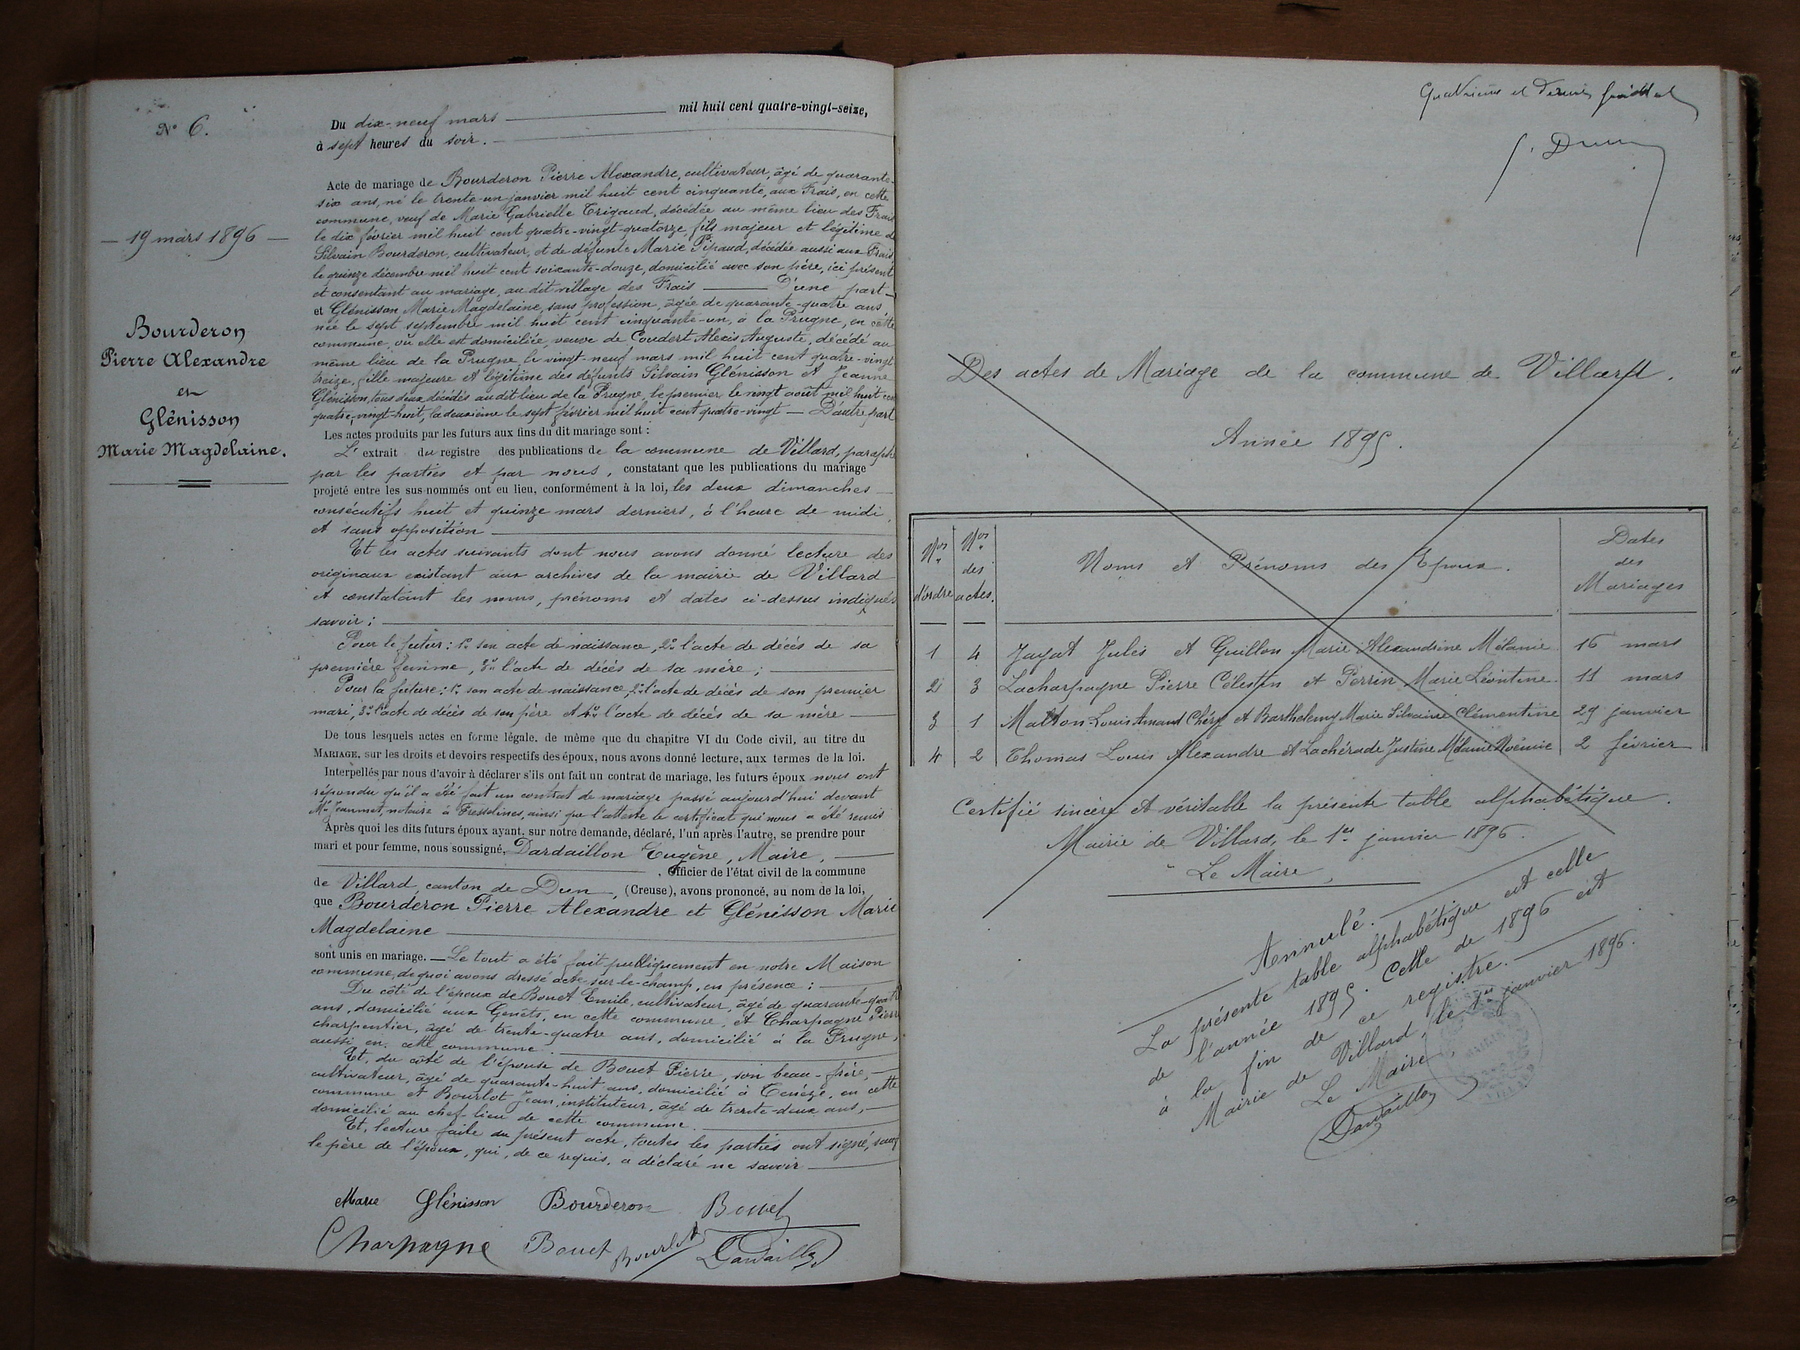 N° 6.
19 mars 1896
Bourderon
Pierre Alexandre
et
Glénisson
Marie Magdelaine.
Du dix-neuf mars mil huit cent quatre-vingt-seize,
à sept heures du soir.
Acte de mariage de Bourderon Pierre Alexandre, cultivateur, âgé de quarante-
six ans, né le trente-un janvier mil huit cent cinquante, aux Frais, en cette
commune, veuf de Marie Gabrielle Trigaud, décédée au même lieu des Frais
le dix février mil huit cent quatre-vingt-quatorze, fils majeur et légitime de
Silvain Bourderon, cultivateur, et de défunte Marie Pipaud, décédée aussi aux Frais,
le quinze décembre mil huit cent soixante-douze, domicilié avec son père, ici présent
et consentant au mariage, au dit village des Frais — D'une part —
et Glénisson Marie Magdelaine, sans profession, âgée de quarante-quatre ans
née le sept septembre mil huit cent cinquante-un, à la Prugne, en cette
commune, où elle est domiciliée, veuve de Coudert Alexis Auguste, décédé au
même lieu de la Prugne, le vingt-neuf mars mil huit cent quatre-vingt
treize, fille majeure et légitime des défunts Silvain Glénisson et Jeanne
Glénisson, tous deux décédés au dit lieu de la Prugne, le premier le vingt août mil huit cent
quatre-vingt-huit, la deuxième le sept février mil huit cent quatre-vingt — D'autre part
Les actes produits par les futurs aux fins du dit mariage sont :
L' extrait du registre des publications de la commune de Villard, paraphé
par les parties et par nous, constatant que les publications du mariage
projeté entre les sus-nommés ont eu lieu, conformément à la loi, les deux dimanches
consécutifs huit et quinze mars derniers, à l'heure de midi,
et sans opposition
Et les actes suivants dont nous avons donné lecture des
originaux existant aux archives de la mairie de Villard
et constatant les noms, prénoms et dates ci-dessus indiqués
savoir :
Pour le futur : 1° son acte de naissance, 2° l'acte de décès de sa
première femme, 3° l'acte de décès de sa mère ;
Pour la future : 1° son acte de naissance, 2° l'acte de décès de son premier
mari, 3° l'acte de décès de son père et 4° l'acte de décès de sa mère
De tous lesquels actes en forme légale, de même que du chapitre VI du Code civil, au titre du
MARIAGE, sur les droits et devoirs respectifs des époux, nous avons donné lecture, aux termes de la loi.
Interpellés par nous d'avoir à déclarer s'ils ont fait un contrat de mariage, les futurs époux nous ont
répondu qu'il a été fait un contrat de mariage passé aujourd'hui devant
Me Jeannet, notaire à Fresselines, ainsi que l'atteste le certificat qui nous a été remis
Après quoi les dits futurs époux ayant, sur notre demande, déclaré, l'un après l'autre, se prendre pour
mari et pour femme, nous soussigné, Dardaillon Eugène, Maire,
, Officier de l'état civil de la commune
de Villard, canton de Dun, (Creuse), avons prononcé, au nom de la loi,
que Bourderon Pierre Alexandre et Glénisson Marie
Magdelaine
sont unis en mariage. — Le tout a été fait publiquement en notre Maison
commune, de quoi avons dressé acte sur-le-champ, en présence :
Du côté de l'époux de Bouet Emile, cultivateur, âgé de quarante-quatre
ans, domicilié aux Genêts, en cette commune, et Charpagne Pierre
charpentier, âgé de trente-quatre ans, domicilié à la Prugne,
aussi en cette commune.
Et, du côté de l'épouse de Bouet Pierre, son beau-frère,
cultivateur, âgé de quarante-huit ans, domicilié à Cenèze, en cette
commune et Bourlot Jean, instituteur, âgé de trente-deux ans,
domicilié au chef-lieu de cette commune.
Et, lecture faite du présent acte, toutes les parties ont signé, sauf
le père de l'époux, qui, de ce requis, a déclaré ne savoir
Marie Glénisson Bourderon Bouet
Charpagne Bouet Bourlot Dardaillon
Quatrième et dernier feuillet
Des actes de Mariage de la commune de Villard.
Année 1895.
Nos d'ordre
Nos des actes.
Noms et Prénoms des Epoux.
Dates des Mariages
1 4 Jayat Jules et Guillon Marie Alexandrine Mélanie 16 mars
2 3 Lacharpagne Pierre Célestin et Perrin Marie Léontine 11 mars
3 1 Matton Louis Amand Chéry et Barthelemy Marie Silvaine Clémentine 29 janvier
4 2 Thomas Louis Alexandre et Lachérade Justine Mélanie Noémie 2 février
Certifié sincère et véritable la présente table alphabétique.
Mairie de Villard, le 1er janvier 1896.
Le Maire,
Annulé.
La présente table alphabétique est celle
de l'année 1895. Celle de 1896 est
à la fin de ce registre.
Mairie de Villard, le 1er janvier 1896.
Le Maire
Dardaillon